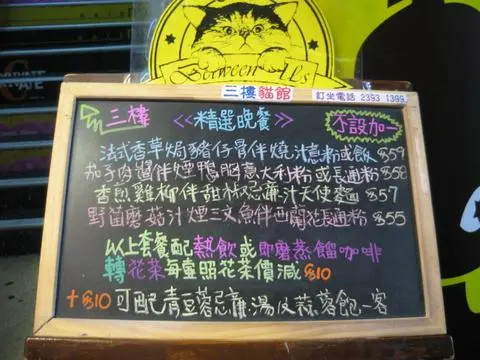 Between Us
三樓貓館
訂坐電話 2393 1399
三樓 <<精選晚餐>> 不設加一
法式香草焗豬仔骨伴燒汁意粉或飯 $59
茄子肉醬伴煙鴨胸意大利粉或長通粉 $58
香煎雞柳伴甜椒忌廉汁天使麵 $57
野菌蘑菇汁煙三文魚伴西蘭花長通粉 $55
以上套餐配熱飲或即磨蒸餾咖啡
轉花茶每壺照花茶價減 $10
+$10 可配青豆蓉忌廉湯及蒜蓉飽一客